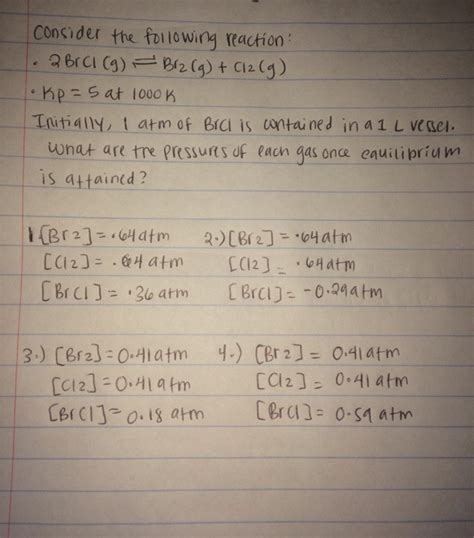 Consider the following reaction:
• 2BrCl (g) ⇌ Br2 (g) + Cl2 (g)
• Kp = 5 at 1000K
Initially, 1 atm of BrCl is contained in a 1 L vessel.
What are the pressures of each gas once equilibrium
is attained?
1.[Br2] = .64atm 2.) [Br2] = .64atm
[Cl2] = .64 atm [Cl2] = .64atm
[BrCl] = .36 atm [BrCl] = -0.29atm
3.) [Br2] = 0.41atm 4.) [Br2] = 0.41atm
[Cl2] = 0.41 atm [Cl2] = 0.41 atm
[BrCl] = 0.18 atm [BrCl] = 0.59 atm